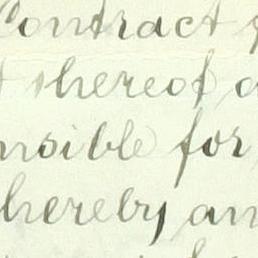 Contract
thereof
nsible for
hereby an